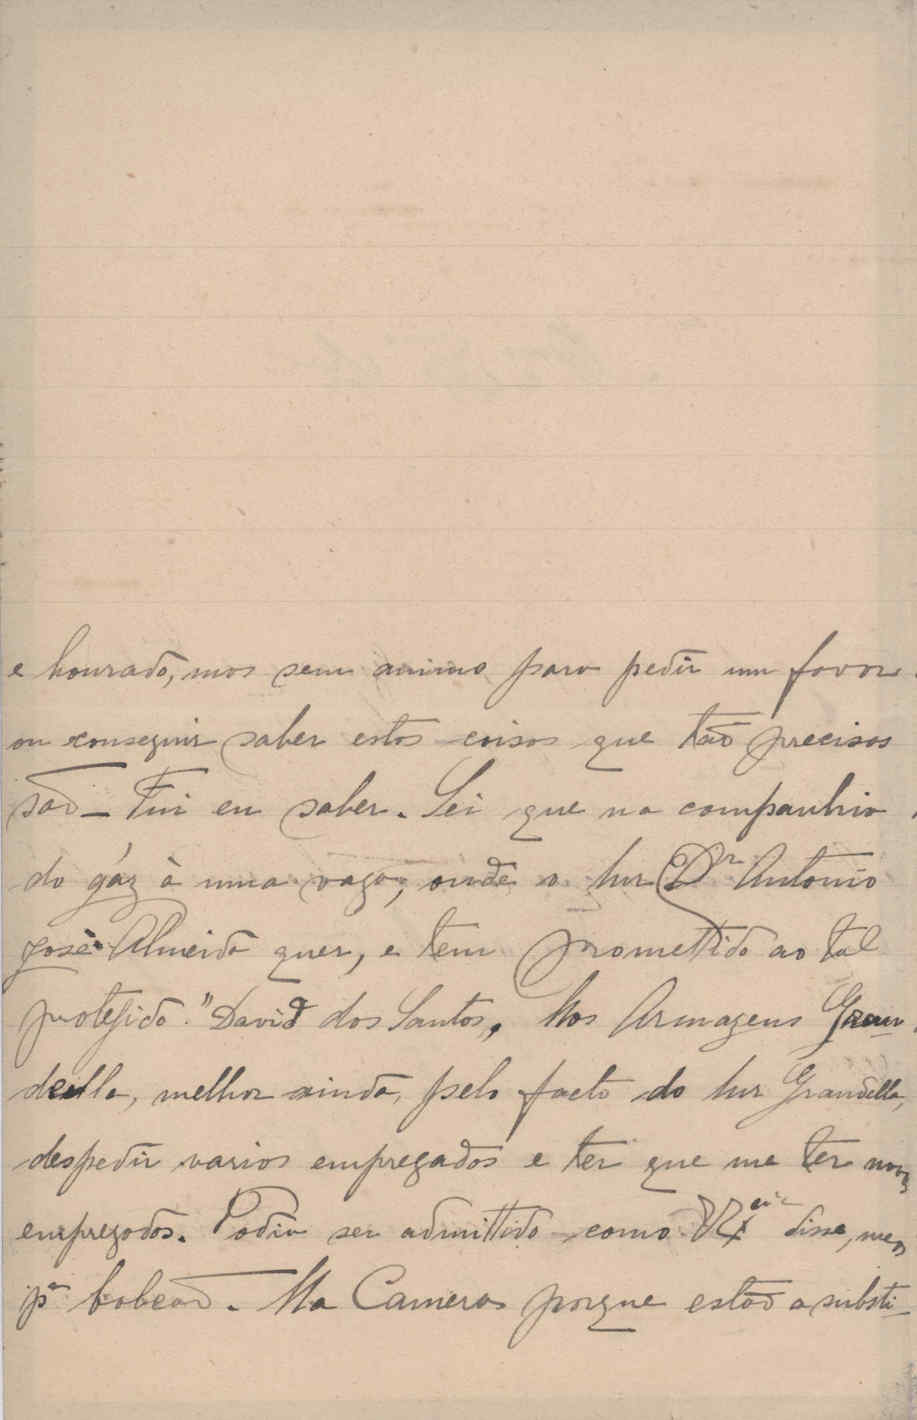 e honrado, mas sem animo para pedir um favor
ou conseguir saber estas coisas que tão precisas
são — Fui eu saber. Sei que na companhia
do gáz à uma vaga, onde o Snr Dr Antonio
José Almeida quer, e tem promettido ao tal
protegido "David dos Santos, Nos Armazens Gran-
della, melhor ainda, pelo facto do Snr Grandella,
despedir varios empregados e ter que me ter novos
empregados. Podia ser admittido como V. Ex.cia disse, mas
pa balcão. Na Camera porque estão a substi-